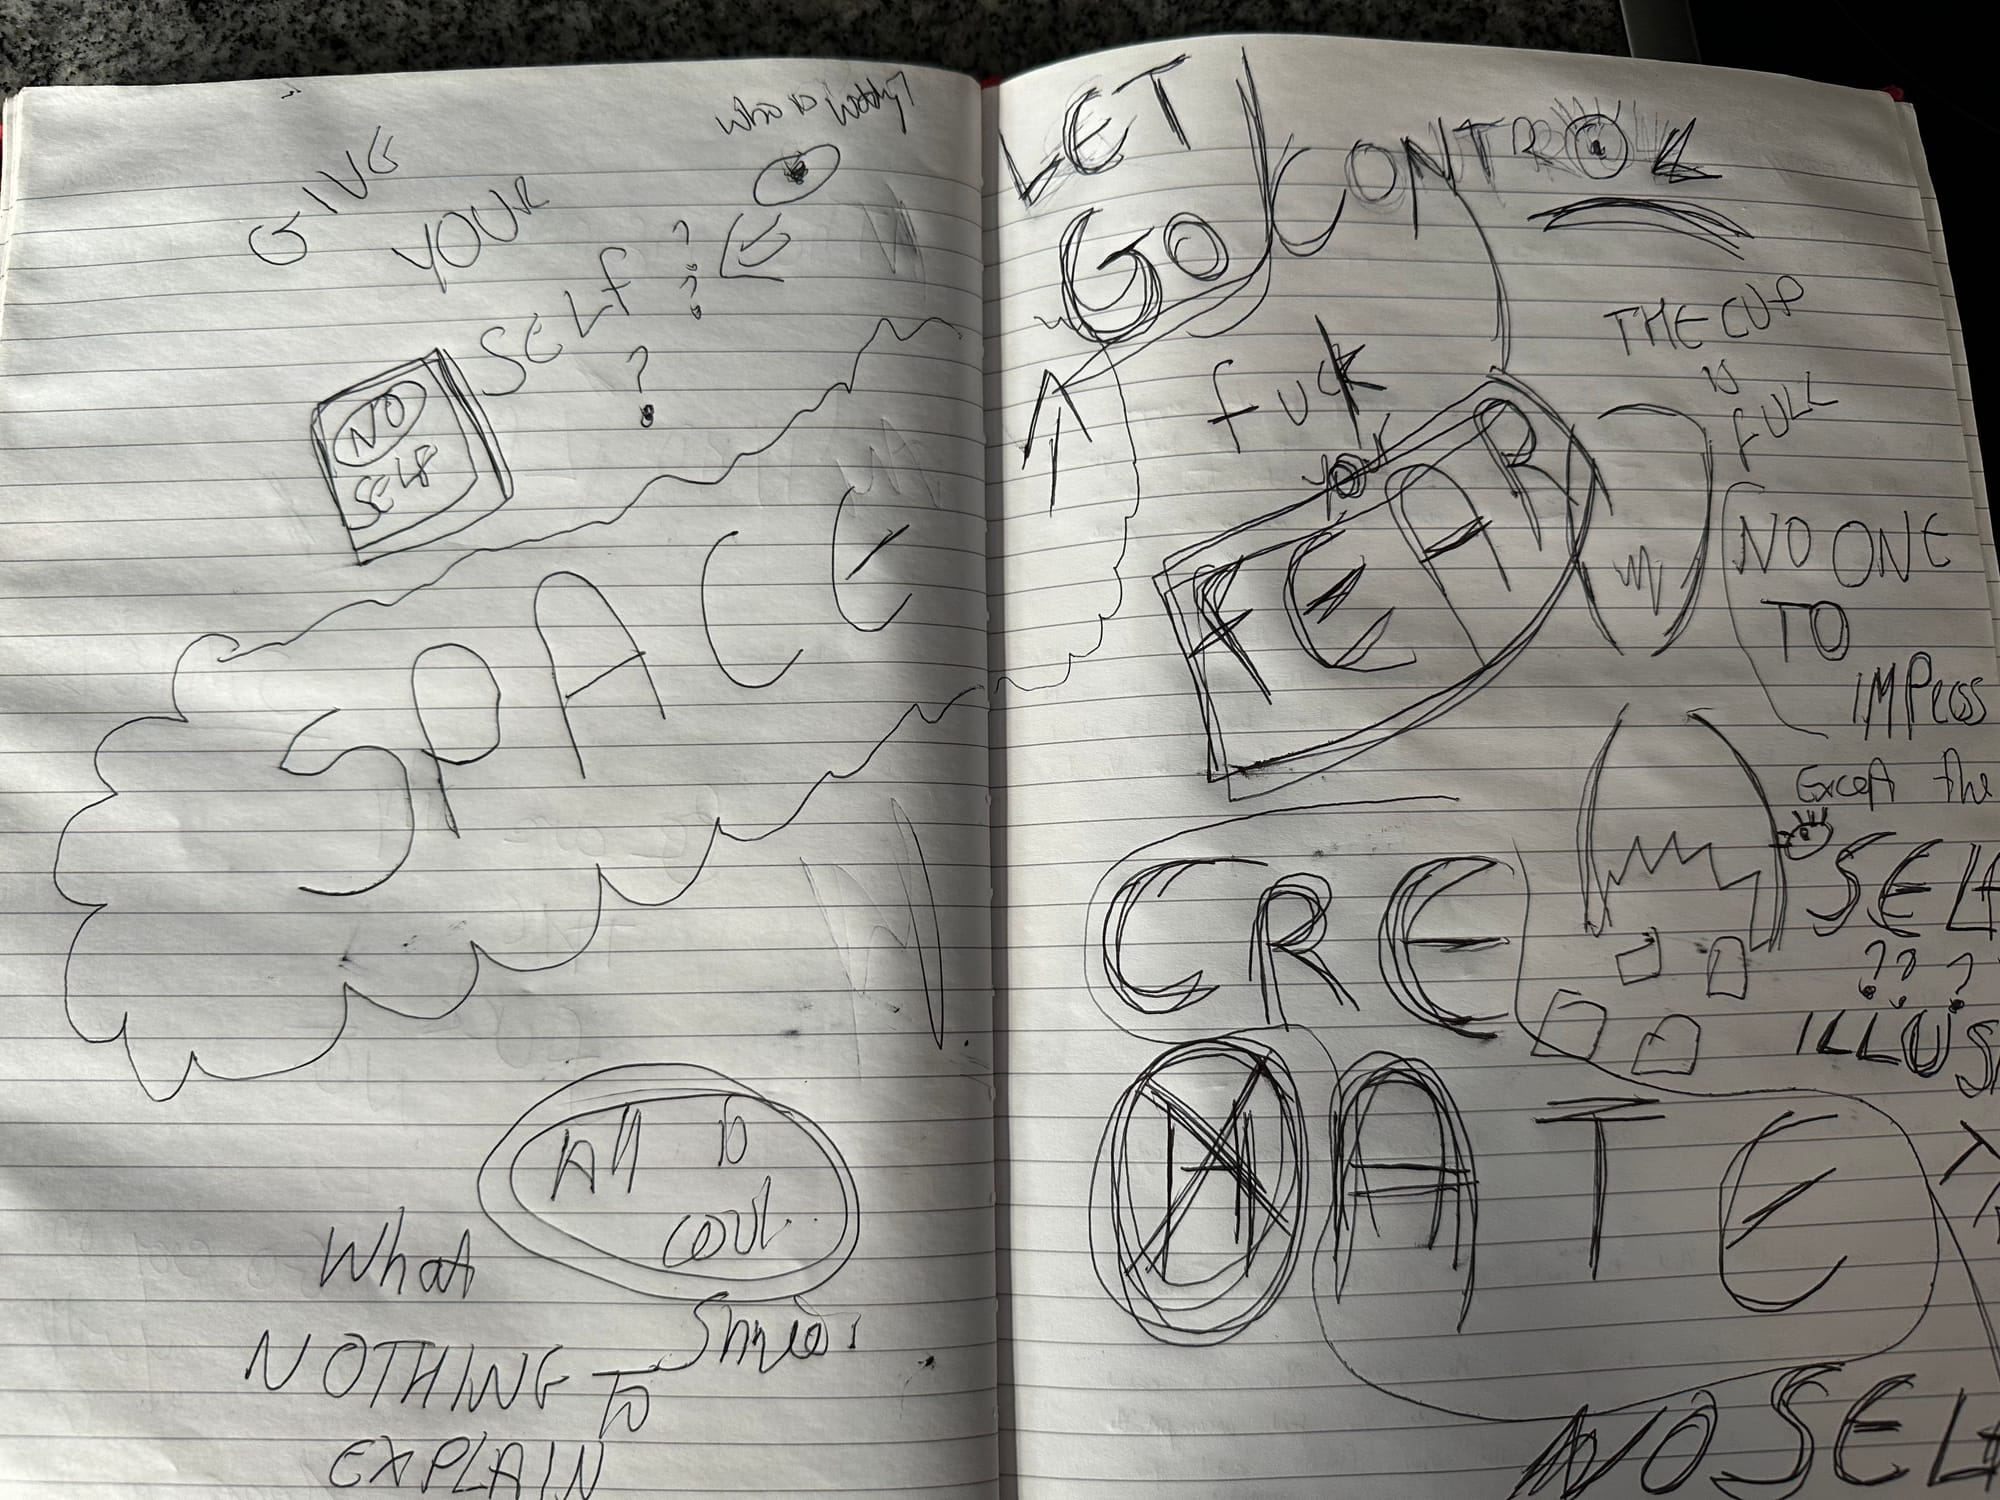 who is
GIVE
YOUR
SELF ? ?
?
NO
SELF
SPACE
All is
cool
What
NOTHING TO
EXPLAIN
LET
GO
CONTROL
fuck
your
FEAR
THE CUP
is
FULL
NO ONE
TO
IMPRESS
Except the
SELF
? ? ?
ILLUS
CRE
ATE
NO SELF